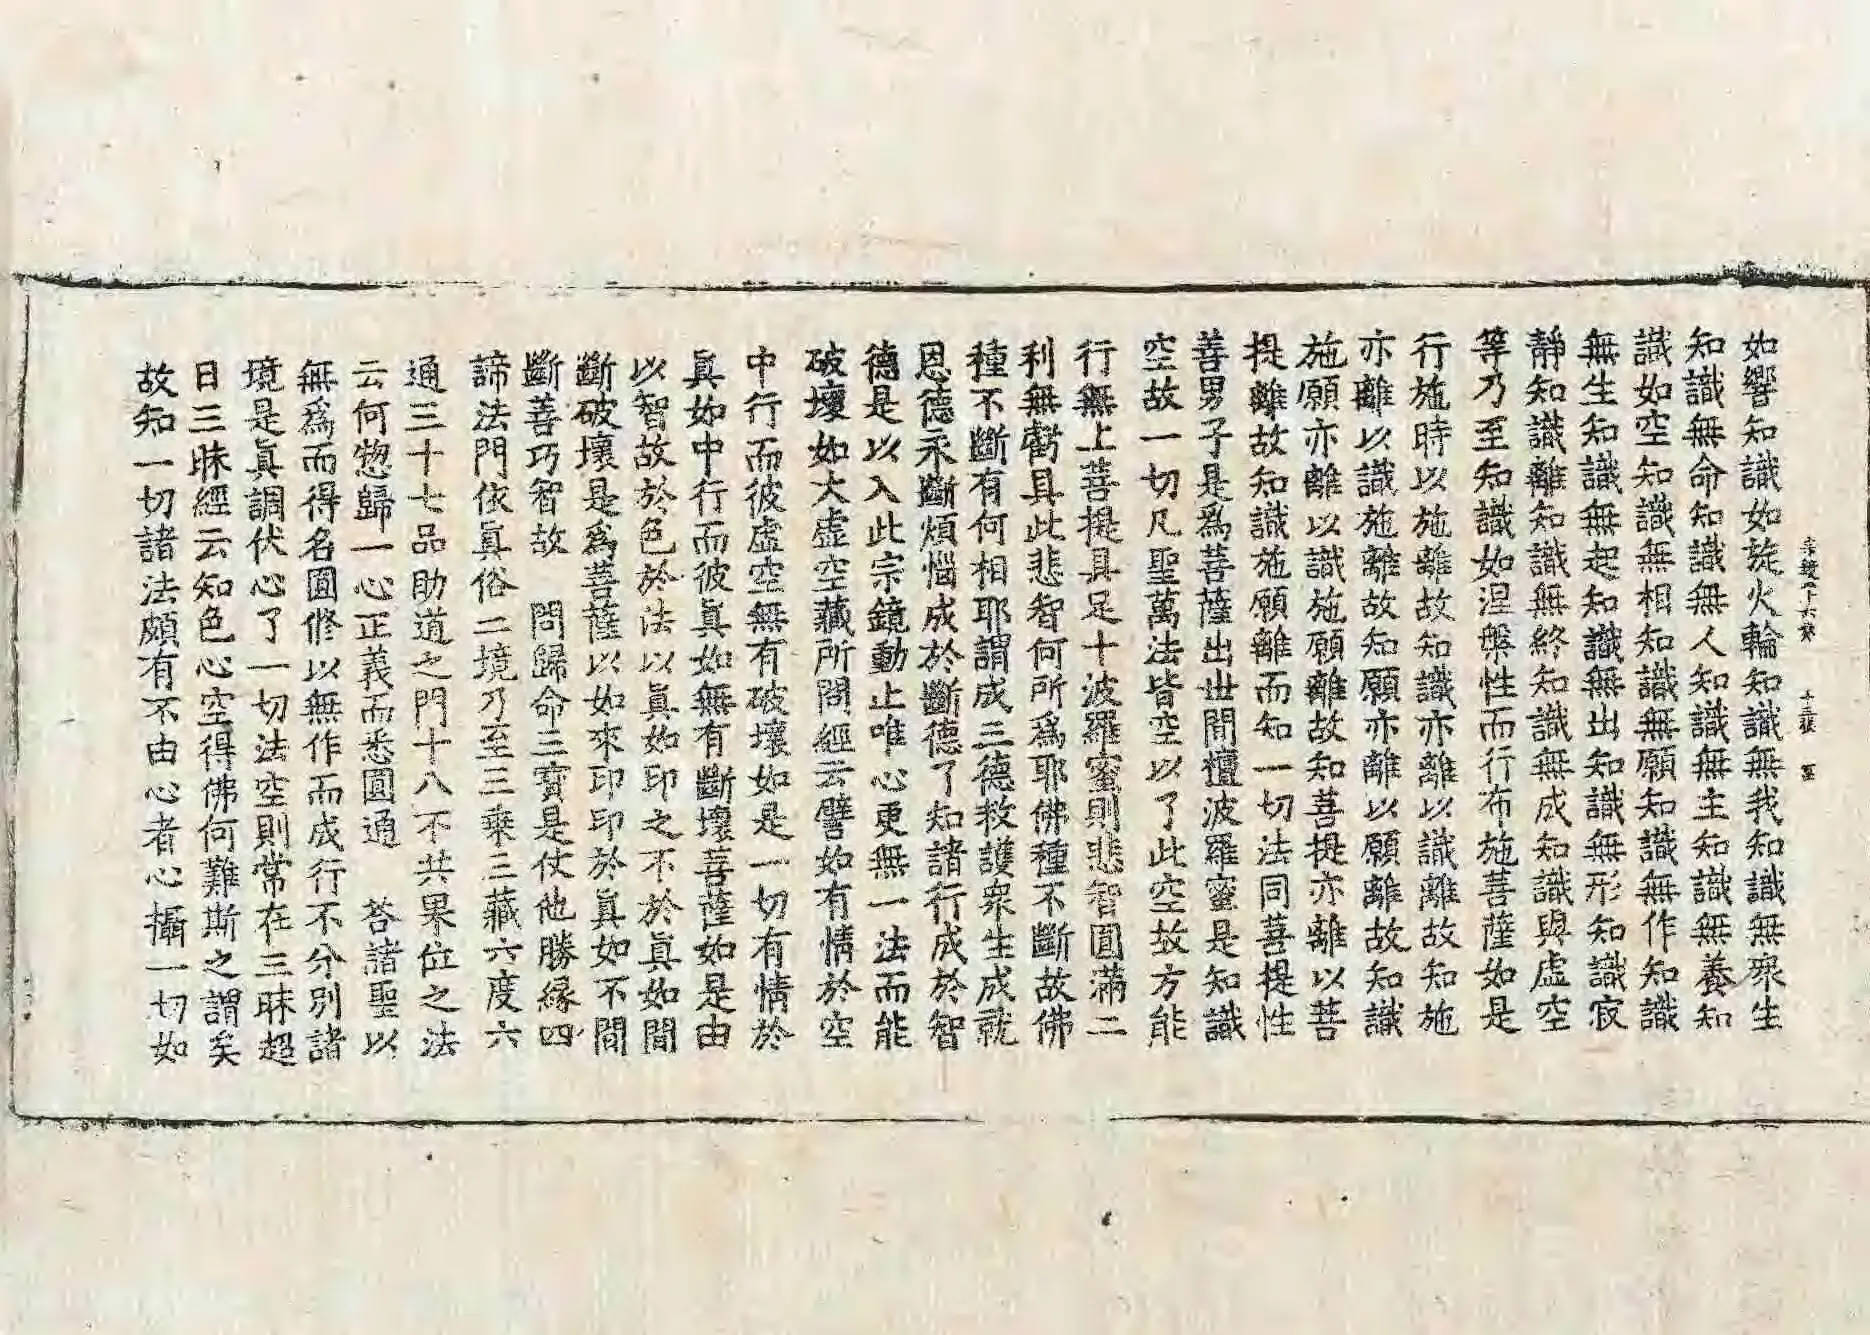 宗鏡 十六卷 十三張
如響知識如旋火輪知識無我知識無眾生
知識無命知識無人知識無主知識無養知
識如空知識無相知識無願知識無作知識
無生知識無起知識無出知識無形知識寂
靜知識離知識無終知識無成知識與虛空
等乃至知識如涅槃性而行布施菩薩如是
行施時以施離故知識亦離以識離故知施
亦離以識施離故知願亦離以願離故知識
施願亦離以識施願離故知菩提亦離以菩
提離故知識施願離而知一切法同菩提性
善男子是爲菩薩出世間檀波羅蜜是知識
空故一切凡聖萬法皆空以了此空故方能
行無上菩提具足十波羅蜜則悲智圓滿二
利無虧具此悲智何所爲耶佛種不斷故佛
種不斷有何相耶謂成三德救護衆生成就
恩德永斷煩惱成於斷德了知諸行成於智
德是以入此宗鏡動止唯心更無一法而能
破壞如大虛空藏所問經云譬如有情於空
中行而彼虛空無有破壞如是一切有情於
眞如中行而彼眞如無有斷壞菩薩如是由
以智故於色於法以眞如印之不於眞如間
斷破壞是爲菩薩以如來印印於眞如不間
斷善巧智故　問歸命三寶是仗他勝緣四
諦法門依眞俗二境乃至三乗三藏六度六
通三十七品助道之門十八不共果位之法
云何惣歸一心正義而悉圓通　荅諸聖以
無爲而得名圓修以無作而成行不分別諸
境是眞調伏心了一切法空則常在三昧超
日三昧經云知色心空得佛何難斯之謂矣
故知一切諸法頗有不由心者心攝一切如